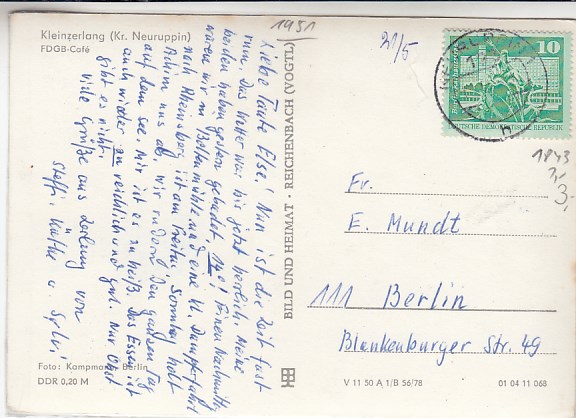 Kleinzerlang (Kr. Neuruppin)
FDGB-Café
1951
21/5
10
DEUTSCHE DEMOKRATISCHE REPUBLIK
1843
3,-
3,-
Liebe Tante Else! Nun ist die Zeit fast
rum. Das Wetter war bis jetzt herrlich. Meine
beiden haben gestern gebadet, 14°! Einen Nachmittag
waren wir in Boltenmühle und eine kl. Dampferfahrt
nach Rheinsberg ist am Freitag. Sonntag holt
Achim uns ab, wir rudern den ganzen Tag
auf dem See, mir ist es zu heiß. Das Essen ist
auch wieder zu reichlich und gut. Nur Obst
gibt es nicht.
Viele Grüße aus Zerlang von
Steffi, Käthe u. Sylvi
BILD UND HEIMAT · REICHENBACH (VOGTL)
Fr.
E. Mundt
111 Berlin
Blankenburger Str. 49
Foto: Kampmann, Berlin
DDR 0,20 M
V 11 50 A 1/B 56/78
01 04 11 068